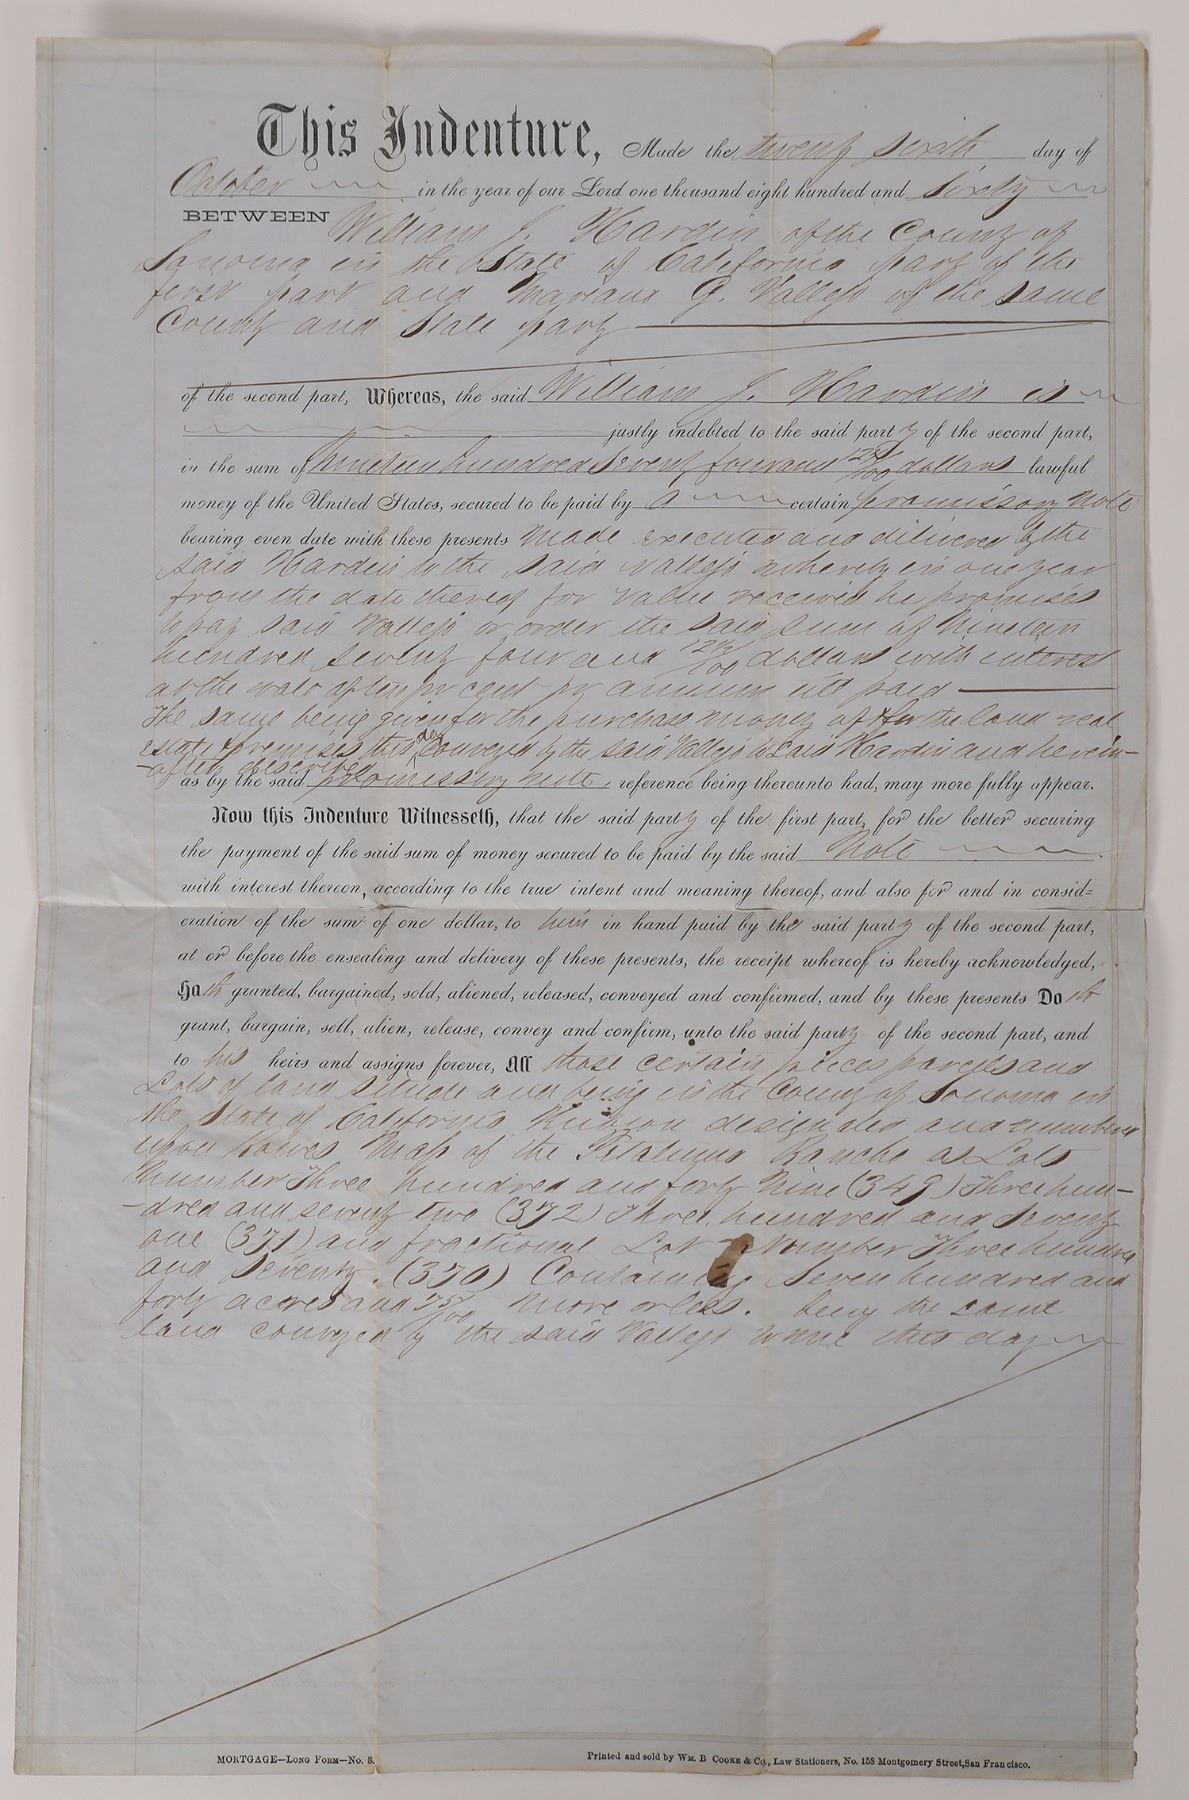 This Indenture, Made the twenty sixth day of
October in the year of our Lord one thousand eight hundred and sixty
BETWEEN William J. Hardin of the County of
Sonoma in the State of California party of the
first part and Mariano G. Vallejo of the same
County and State party
of the second part, Whereas, the said William J. Hardin is
justly indebted to the said party of the second part,
in the sum of Nineteen hundred seventy four and /100 dollars lawful
money of the United States, secured to be paid by a certain promissory note
bearing even date with these presents made executed and delivered by the
said Hardin to the said Vallejo whereby in one year
from the date thereof for value received he promises
to pay said Vallejo or order the said sum of Nineteen
hundred seventy four and /100 dollars with interest
at the rate of ten pr cent pr annum till paid
The same being given for the purchase money of & for the land real
estate & premises this day conveyed by the said Vallejo to said Hardin and herein-
-after described
as by the said promissory note, reference being thereunto had, may more fully appear.
Now this Indenture Witnesseth, that the said party of the first part, for the better securing
the payment of the said sum of money secured to be paid by the said Note
with interest thereon, according to the true intent and meaning thereof, and also for and in consid=
eration of the sum of one dollar, to him in hand paid by the said party of the second part,
at or before the ensealing and delivery of these presents, the receipt whereof is hereby acknowledged,
Hath granted, bargained, sold, aliened, released, conveyed and confirmed, and by these presents Doth
grant, bargain, sell, alien, release, convey and confirm, unto the said party of the second part, and
to his heirs and assigns forever, All those certain pieces parcels and
Lots of land situate and being in the County of Sonoma in
the State of California Known designated and numbered
upon Rowes Map of the Petaluma Rancho as Lots
Number Three hundred and forty Nine (349) Three hun-
-dred and seventy two (372) Three hundred and seventy
one (371) and fractional Lot Number Three hundred
and Seventy. (370) Containing Seven hundred and
forty acres and 75/100 more or less. being the same
land conveyed by the said Vallejo to me this day
MORTGAGE—LONG FORM—No. 8.
Printed and sold by WM. B COOKE & CO., Law Stationers, No. 158 Montgomery Street, San Francisco.